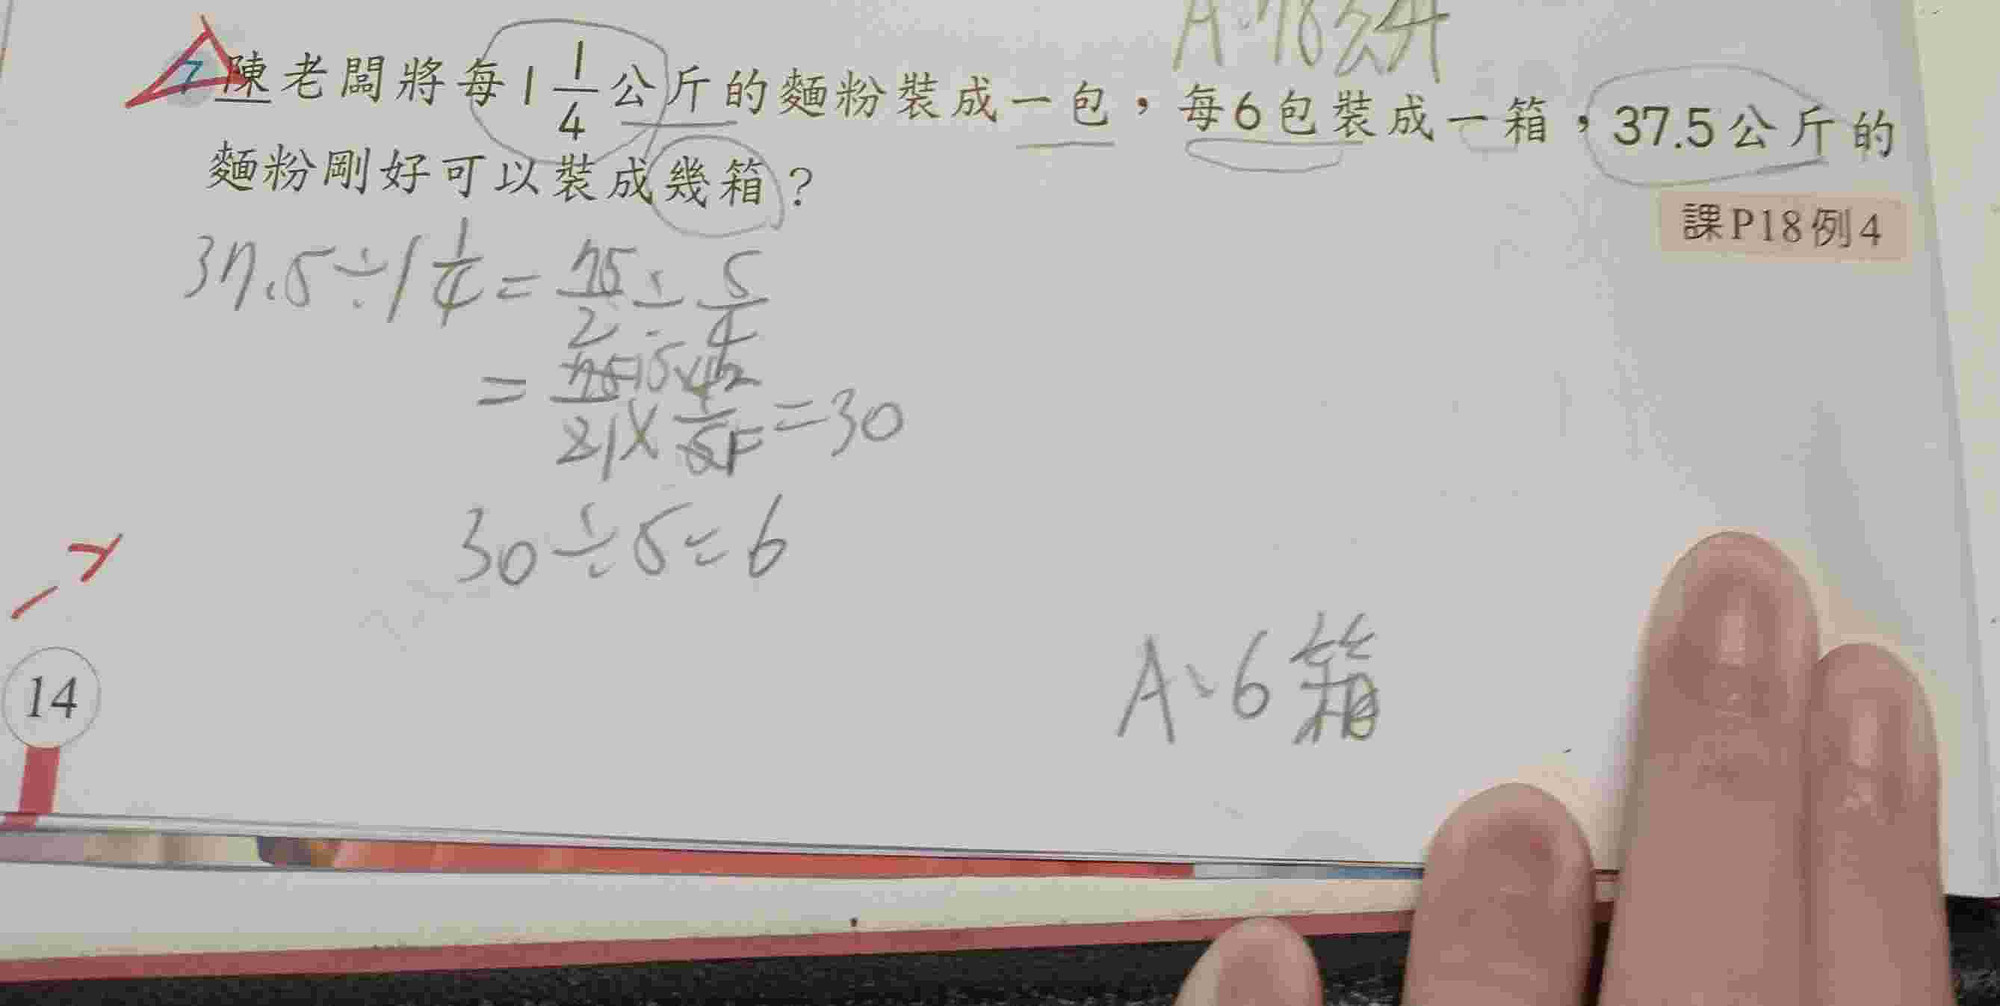 A:18公升
7 陳老闆將每1 1/4公斤的麵粉裝成一包，每6包裝成一箱，37.5公斤的
麵粉剛好可以裝成幾箱？
課P18例4
37.5÷1 1/4=75/2÷5/4
=75 15/2 1×4 2/5 1=30
30÷5=6
A:6箱
14